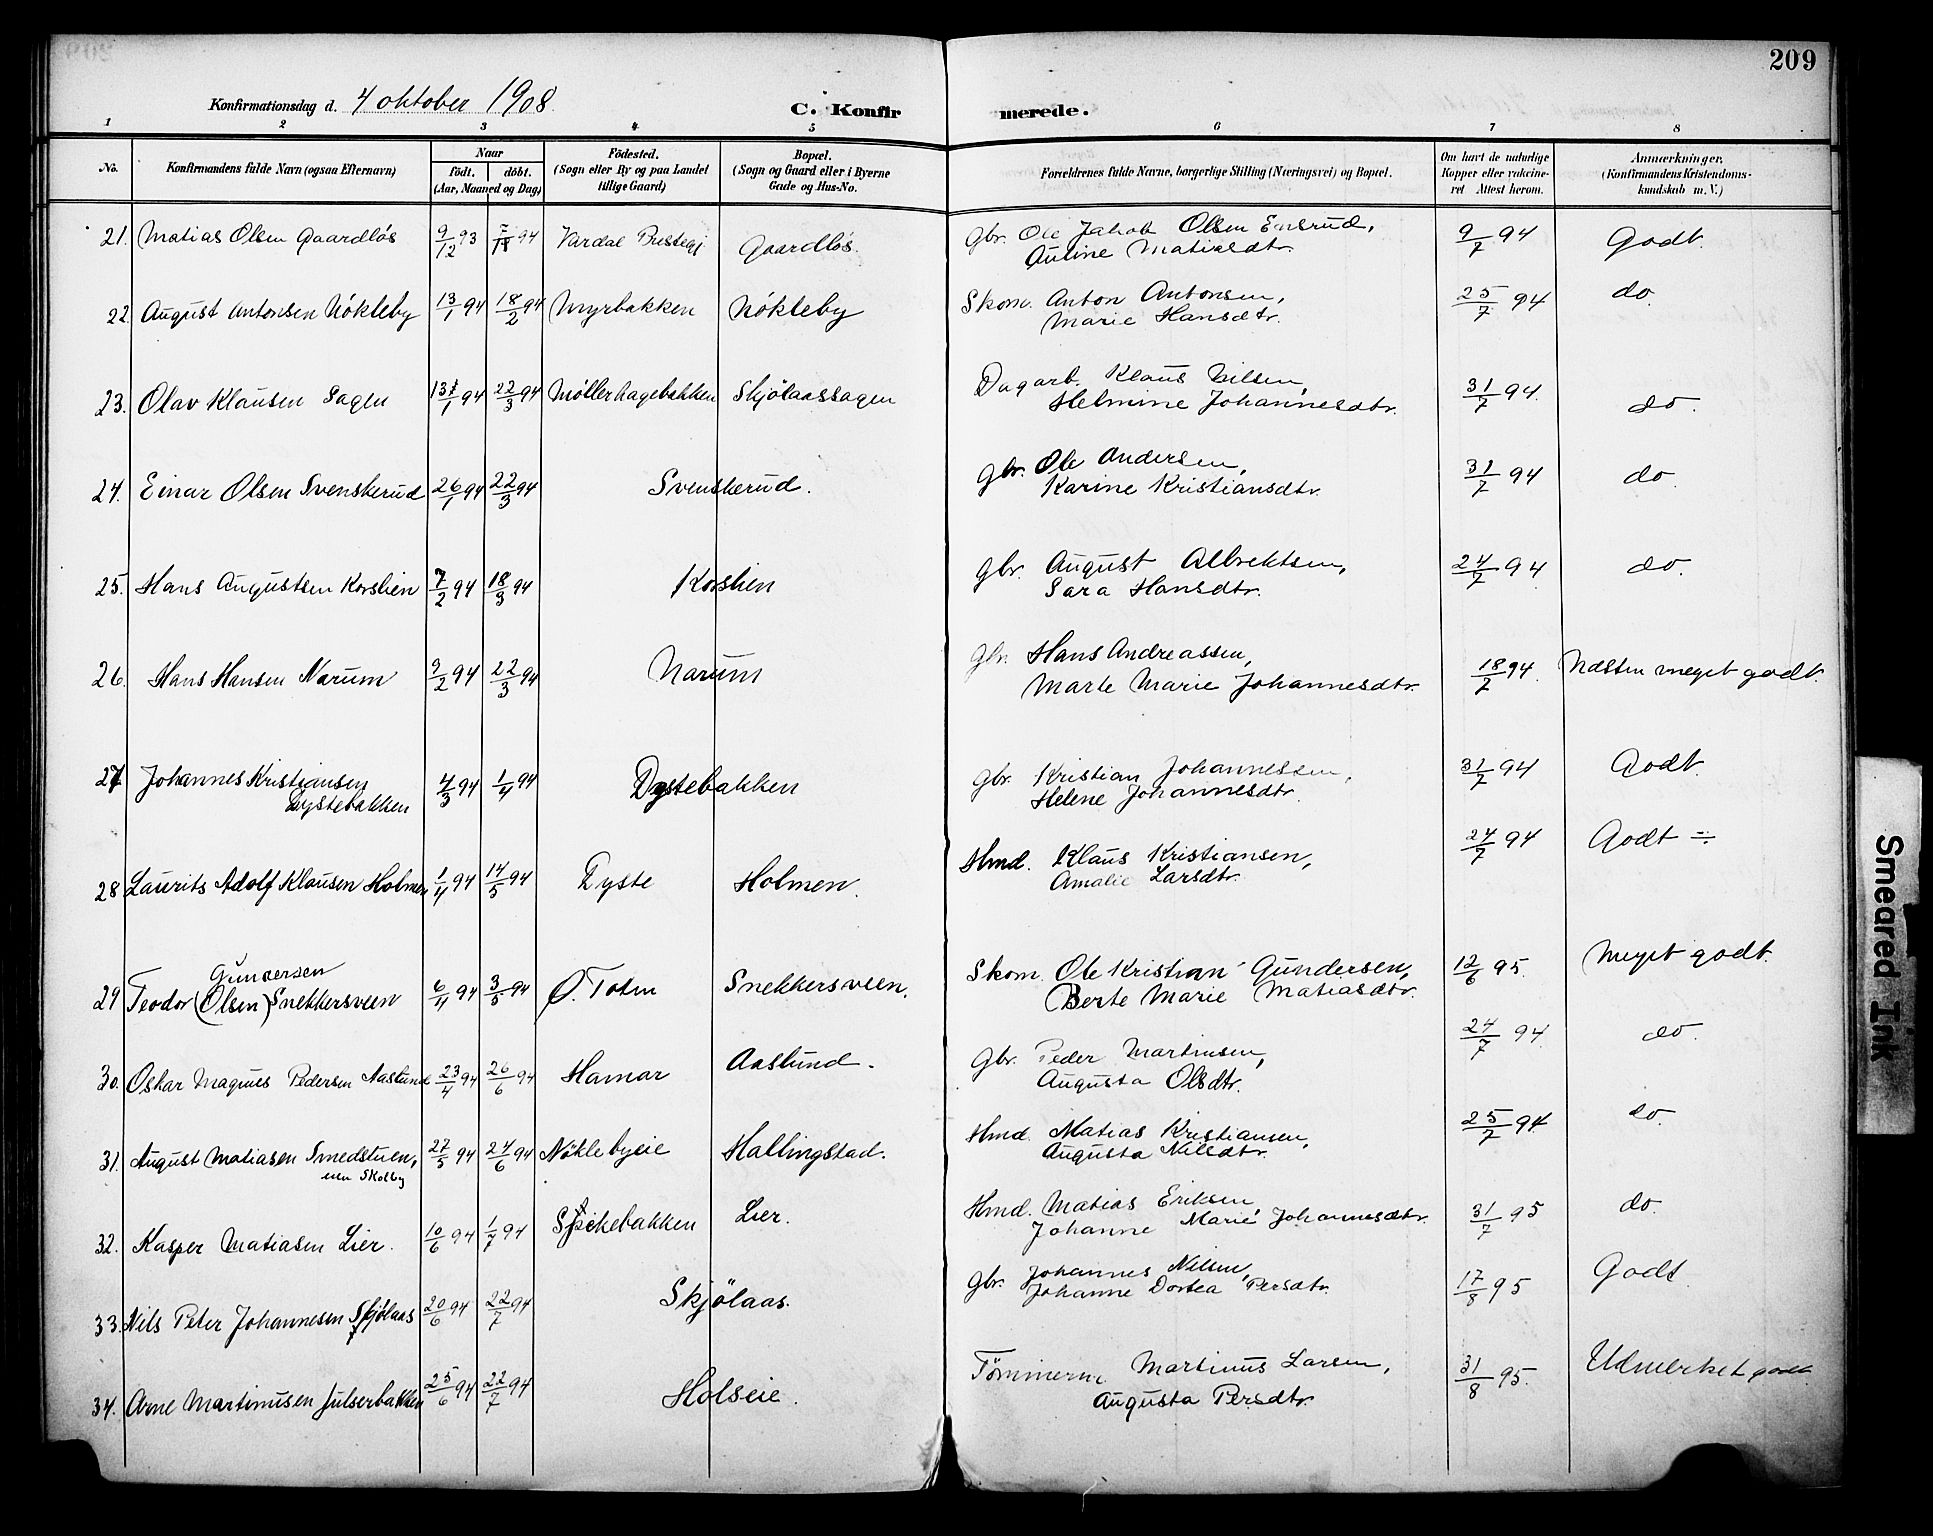 209
Konfirmationsdag d. 4 oktober 1908
C. Konfirmerede.
1 2 3 4 5 6 7 8
No. Konfirmandens fulde Navn (ogsaa Efternavn) Naar födt. döbt. (Aar, Maaned og Dag) Födested. (Sogn eller By og paa Landet tillige Gaard) Bopæl. (Sogn og Gaard eller i Byerne Gade og Hus-No. Forældrenes fulde Navne, borgerlige Stilling (Næringsvei) og Bopæl. Om havt de naturlige Kopper eller vakcineret Attest herom. Anmærkninger. (Konfirmandens Kristendomskundskab m. V.)
21. Matias Olsen Gaardløs 9/12 93 94 Vardal Prestegj Gaardløs. Gbr. Ole Jakob Olsen Ensrud, 9/7 94 Godt.
Auline Matiasdtr.
22. August Antonsen Nökleby 13/1 94 18/2 94 Myrbakken Nökleby Skom. Anton Antonsen, 25/7 94 do.
Marie Hansdtr.
23. Olav Klausen Sagen 94 22/3 94 Møllerhagebakken Skjölaassagen Dagarb. Klaus Nilsen, 31/7 94. do.
Helmine Johannesdtr.
24. Einar Olsen Svenskerud 26/1 94 22/3 94 Svenskerud. Gbr. Ole Andersen, 31/7 94 do.
Karine Kristiansdtr.
25. Hans Augustsen Korslien 7/2 94 18/3 94 Korslien Gbr. August Albrektsen, 24/7 94 do.
Sara Hansdtr.
26. Hans Hansen Narum 9/2 94 22/3 94 Narum Gbr. Hans Andreassen, 18/7 94. Næsten meget godt.
Marte Marie Johannesdtr.
27 Johannes Kristiansen 4/3 94 1/4 94 Dystebakken Gbr. Kristian Johannessen, 31/7 94 Godt.
Dystebakken Helene Johannesdtr.
28 Laurits Adolf Klausen Holmen 1/4 94 14/5 94 Dyste Holmen. Hmd. Klaus Kristiansen, 24/7 94 Godt ÷
Amalie Larsdtr.
Gundersen
29 Teodor (Olsen) Snekkersveen 6/4 94 3/5 94 Ø. Toten Snekkersveen. Skom. Ole Kristian Gundersen, 12/6 95. Meget godt.
Berte Marie Matiasdtr.
30. Oskar Magnus Pedersen Aaslund 23/4 94 26/6 94 Hamar Aaslund. Gbr. Peder Martinsen, 24/7 94. do.
Augusta Olsdtr.
31. August Matiasen Smedstuen, 27/5 94 24/6 94 Nöklebyeie Hallingstad. Hmd. Matias Kristiansen, 25/7 94 do.
Skolby Augusta Nilsdtr.
32. Kasper Matiasen Lier. 10/6 94 1/7 94 Spikebakken Lier. Hmd. Matias Eriksen, 31/7 95 do.
Johanne Marie Johannesdtr.
33. Nils Peter Johannesen Skjölaas 20/6 94 22/7 94 Skjölaas. Gbr. Johannes Nilsen, 17/8 95 Godt
Johanne Dortea Persdtr.
34. Arne Martinusen Julserbakken 25/6 94 22/7 94 Holseie. Tömmerm. Martinus Larsen, 31/8 95. Udmerket godt
Augusta Persdtr.
Smeared Ink